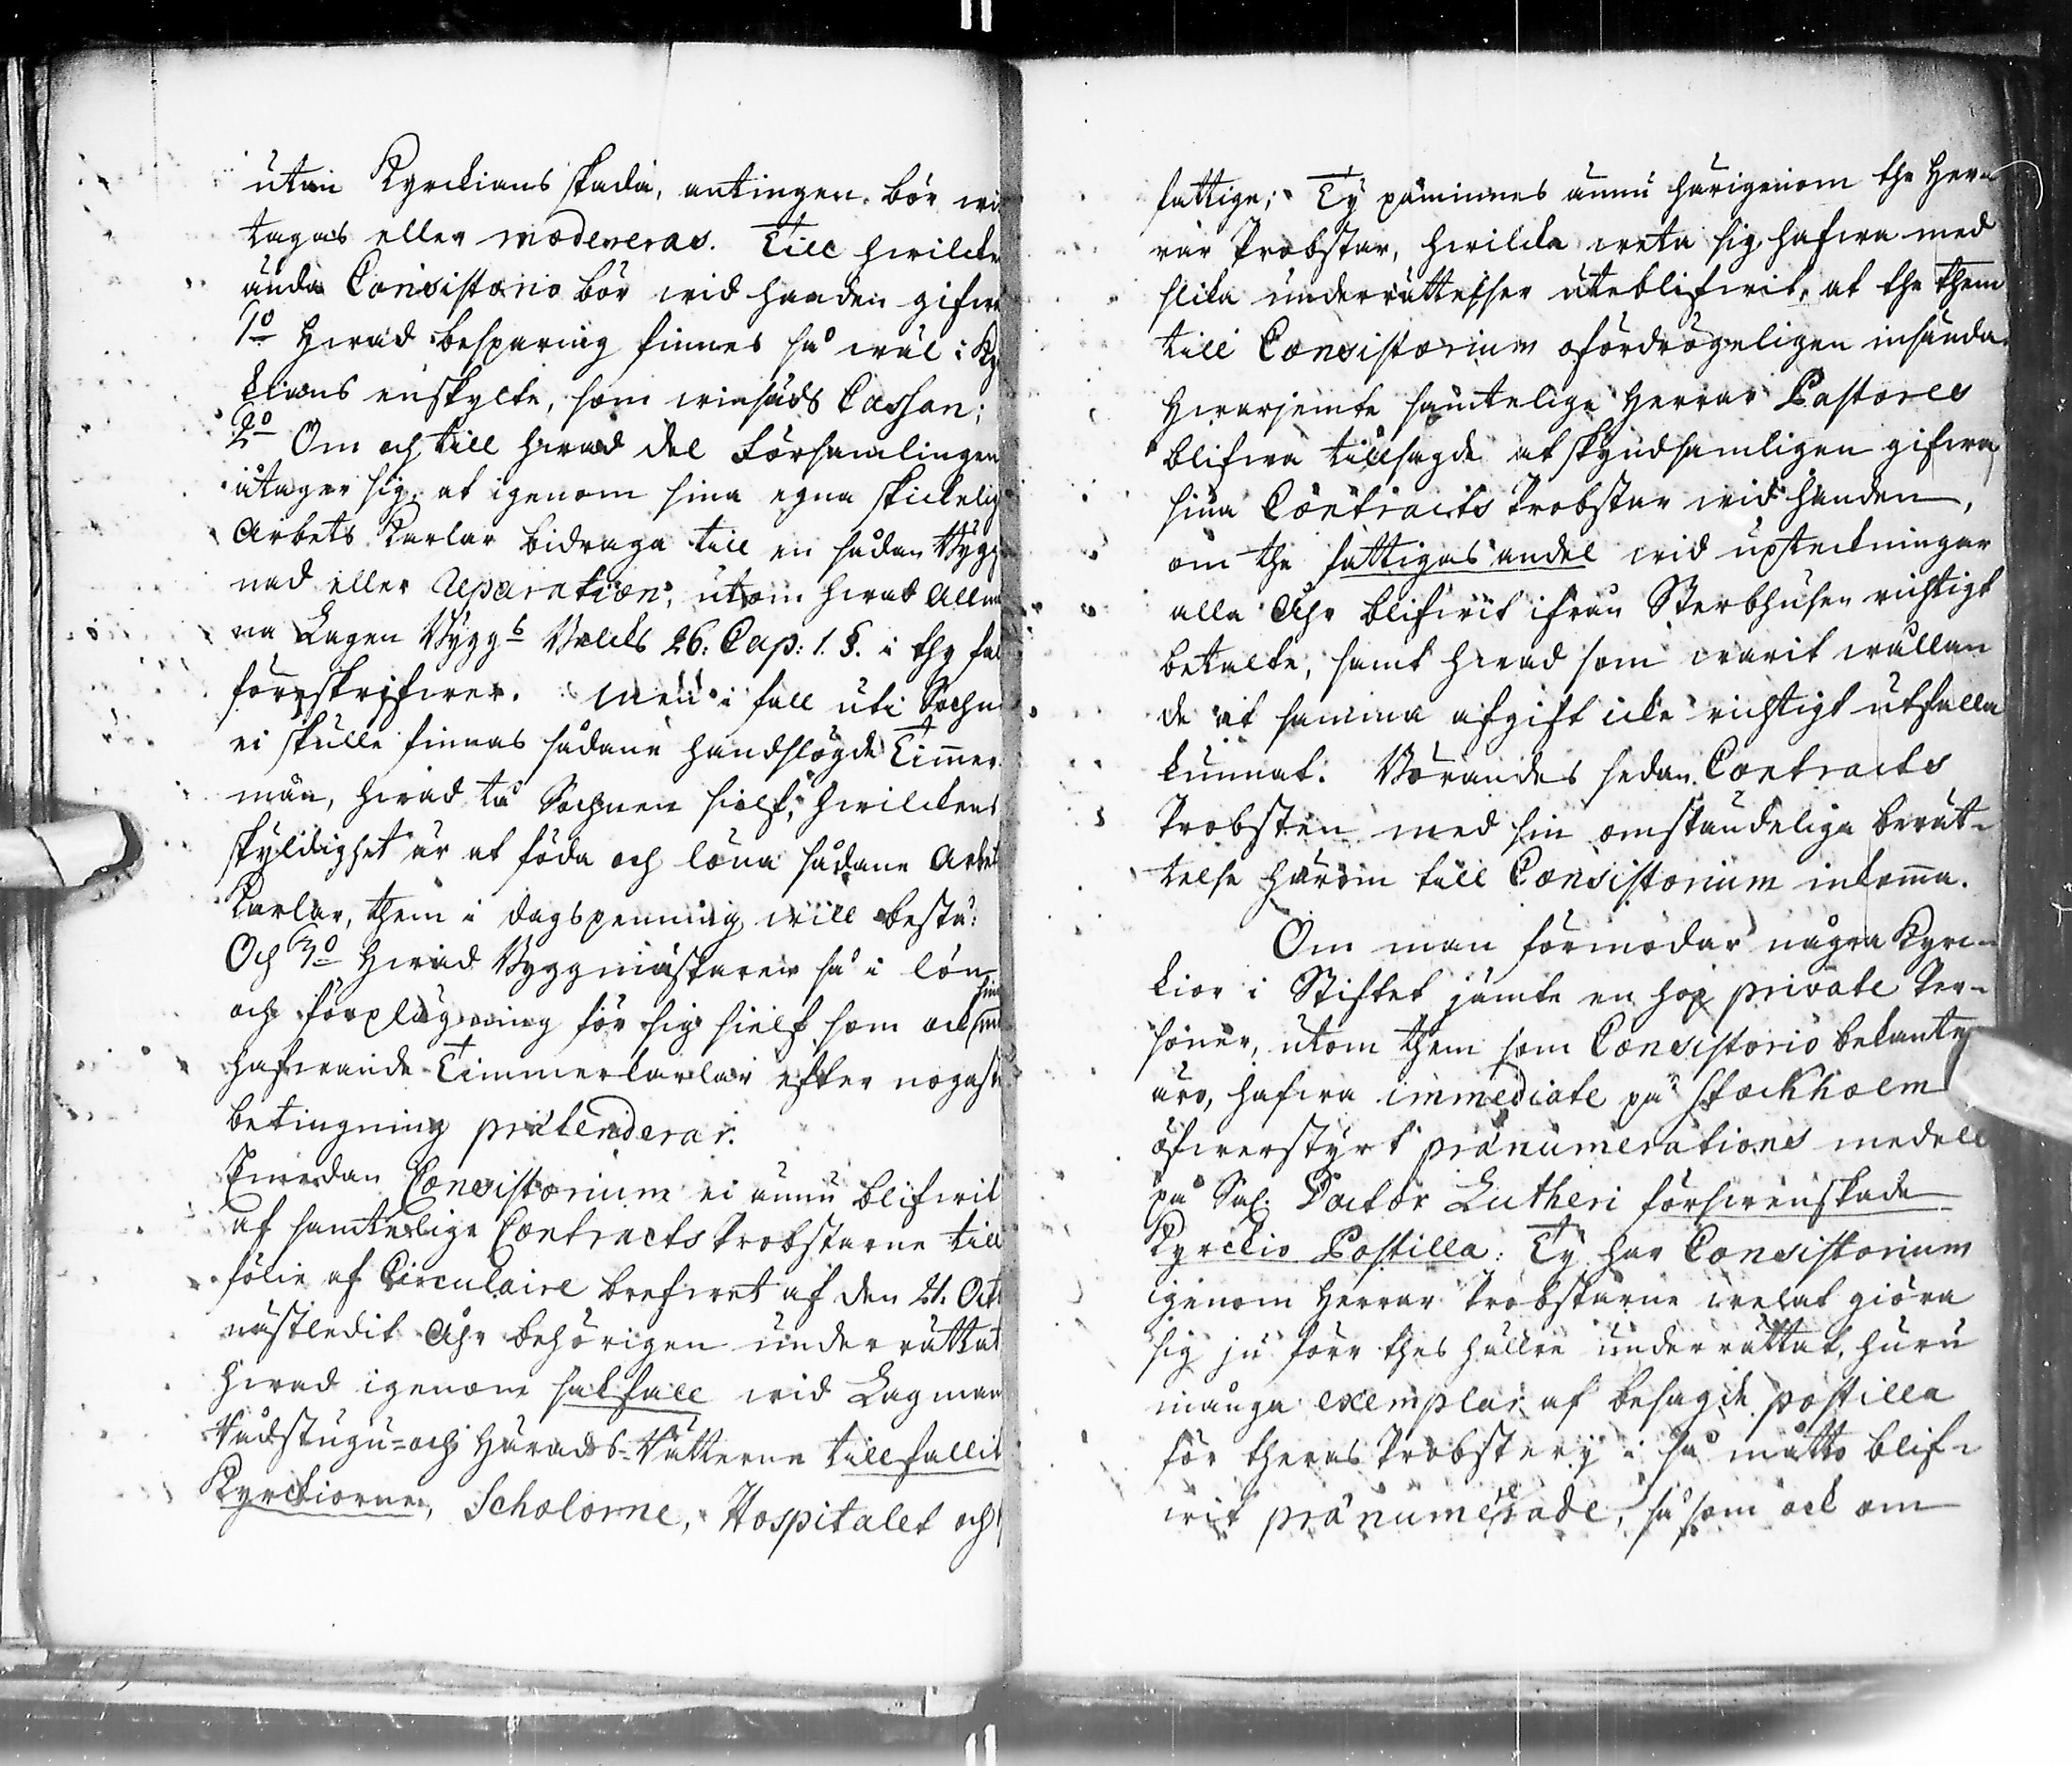 utan Kyrckians skada, antingen bör wid
tagas eller modereras. Till hwilcken
ända Consistorio bör wid handen gifwas
1o Hwad besparing finnes så wäl i Kyr
kians enskylte, som winsäds Cassan;
2o Om och till hwad del Församlingen
åtager sig, at igenom sina egna skickelige
Arbets Karlar bidraga till en sådan Bygg
nad eller Reparation, utom hwad Allmän
na Lagen Byggs Balcks 26: Cap: 1. §. i thy fall
förreskrifwer. Men i fall uti Sochnen
ei skulle finnas sådane handslögde Timmer
män, hwad tå Sochnen sielf, hwilckens
skyldighet är at föda och löna sådane Arbets
Karlar, them i dagspenning will bestå:
Och 3o Hwad Byggmästaren så i lön
och förplägning för sig sielf som ock sine
hafwande Timmerkarlar efter nogaste
betingning prætenderar.
Emedan Consistorium ei ännu blifwit
af samtelige Contracts Probstarne till
fölie af Circulaire brefwet af den 21. Oct.
nästledit Åhr behörigen underrättat
hwad igenom sakfall wid Lagmans
Rådstugu- och Härads-Rätterne tillfallit
Kyrckiorne, Scholorne, Hospitalet och
fattige; Ty påminnes ännu härigenom the Her-
rar Probstar, hwilcka weta sig hafwa med
slika underrättelser uteblifwit, at the them
till Consistorium ofördröyeligen insända.
Hwarjemte samtelige Herrar Pastores
blifwa tillsagde at skyndsamligen gifwa
sina Contracts Probstar wid handen,
om the fattigas andel wid upteckningar
alla Åhr blifwit ifrån Sterbhusen richtigt
betalte, samt hwad som warit wållan
de at samma afgift icke richtigt utfalla
kunnat. Börandes sedan Contracts
Probsten med sin omständeliga berät-
telse härom till Consistorium inkomma.
Om man förmodar några Kyrc-
kior i Stiftet jämte en hop private Per-
soner, utom them som Consistorio bekante
äro, hafwa immediate på Stockholm
öfwerstyrt pränumerations medell
på Sal. Doctor Lutheri förswenskade
Kyrckio Postilla: Ty har Consistorium
igenom Herrar Probstarne welat giöra
sig ju förr thes hällre underrättat, huru
många exemplar af besagde postilla
för theras Probstery i så måtto blif-
wit pränumererade, så som ock om